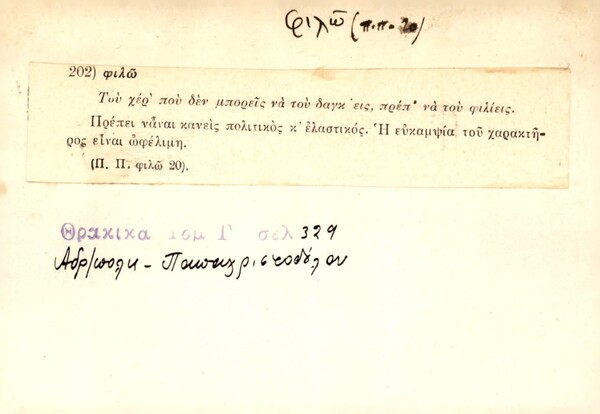 φιλῶ (Π.Π. 20)
202) φιλῶ
Τοὺ χέρ' ποὺ δὲν μπορεῖς νὰ τοὺ δαγκ'εις, πρέπ' νὰ τοὺ φιλίεις.
Πρέπει νἆναι κανεὶς πολιτικὸς κ' ἐλαστικός. Ἡ εὐκαμψία τοῦ χαρακτῆ-
ρος εἶναι ὠφέλιμη.
(Π. Π. φιλῶ 20).
Θρακικα Τομ Γ' σελ 329
Αδρ/πολη - Παπαχριστοδούλου